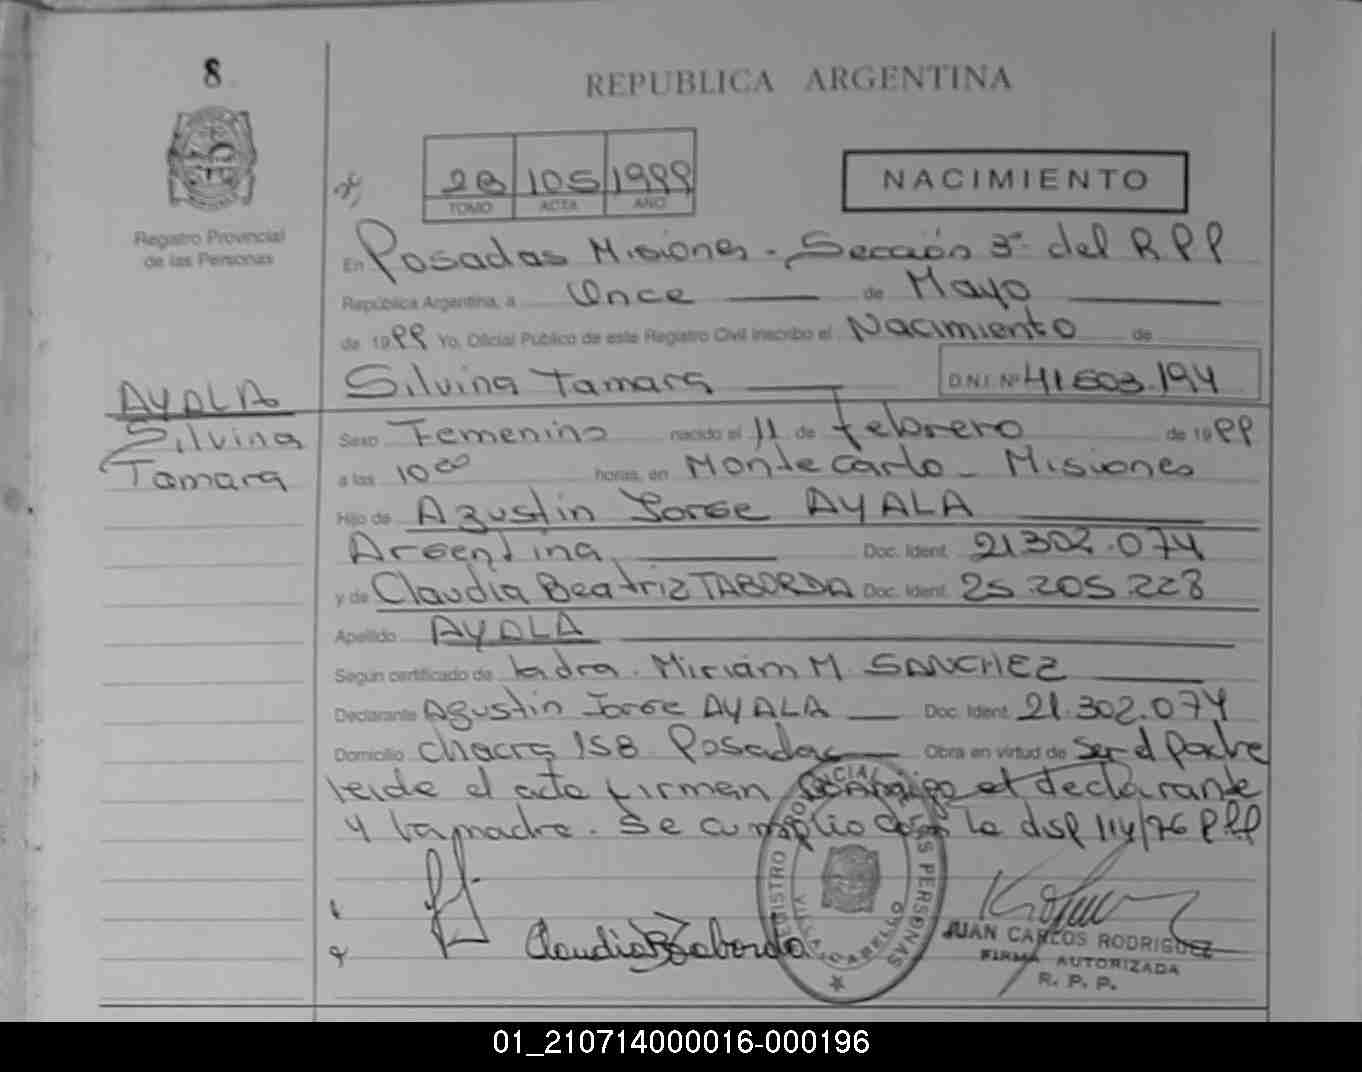 8
REPUBLICA ARGENTINA
2B 105 1999
TOMO ACTA AÑO
NACIMIENTO
Registro Provincial
de las Personas
En Posadas Misiones - Sección 3ª del R P P
República Argentina, a Once de Mayo
de 1999 Yo, Oficial Público de este Registro Civil inscribo el Nacimiento de
Silvina Tamara D.N.I. Nº 41.603.194
AYALA
Silvina
Tamara
Sexo Femenino nacido el 11 de febrero de 1999
a las 10 00 horas, en Montecarlo - Misiones
Hijo de Agustin Jorge AYALA
Argentina Doc. Ident. 21.302.074
y de Claudia Beatriz TABORDA Doc. Ident. 25.205.228
Apellido AYALA
Según certificado de la dra. Miriam M. SANCHEZ
Declarante Agustin Jorge AYALA Doc. Ident. 21.302.074
Domicilio chacra 158 Posadas Obra en virtud de ser el padre
leide el acta firman conmigo el declarante
y la madre. Se cumplio con la disp 114/76 RPP
REGISTRO PROVINCIAL DE LAS PERSONAS
VILLA CABELLO
Claudia B Taborda
JUAN CARLOS RODRIGUEZ
FIRMA AUTORIZADA
R. P. P.
01_210714000016-000196